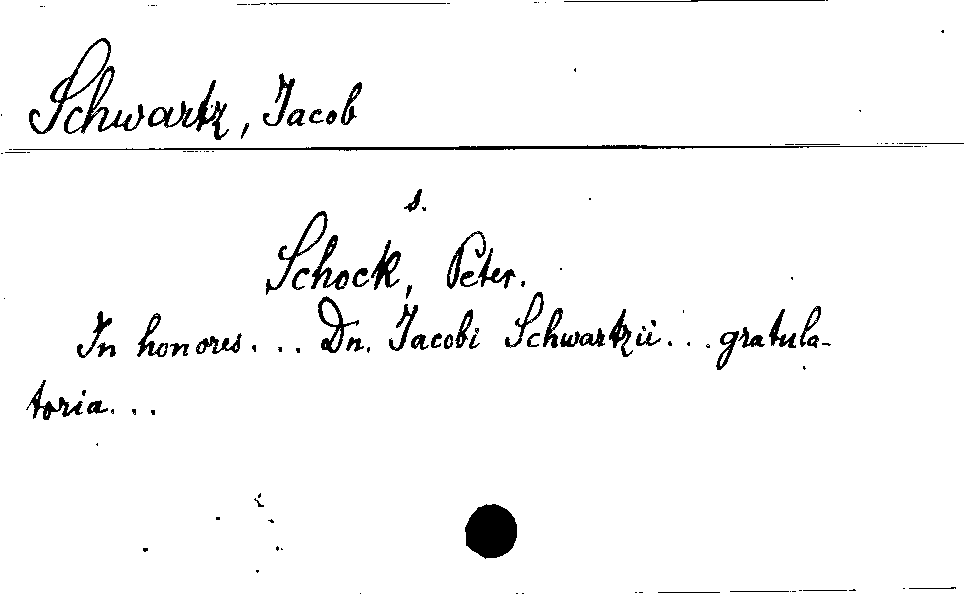 Schwartz, Jacob
s.
Schock, Peter.
In honores... Dn. Jacobi Schwartzii... gratula-
toria...